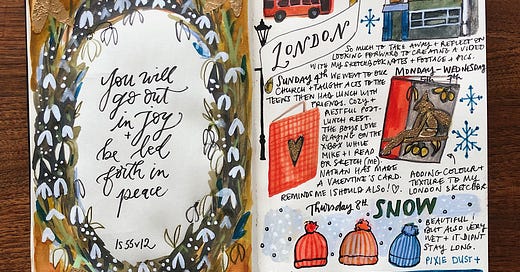 You will
go out
in Joy
+
be led
forth in
peace
Is 55v12
LONDON
SO MUCH TO TAKE AWAY + REFLECT ON
LOOKING FORWARD TO CREATING A VIDEO
WITH MY SKETCHBOOK, NOTES + FOOTAGE + PICS.
SUNDAY 4th WE WENT TO OUR
CHURCH + TAUGHT ACTS TO THE
TEENS THEN HAD LUNCH WITH
FRIENDS. COZY +
RESTFUL POST-
LUNCH REST.
THE BOYS LOVE
PLAYING ON THE
XBOX WHILE
MIKE + I READ
OR SKETCH (ME).
NATHAN HAS MADE
A VALENTINE'S CARD.
REMINDS ME I SHOULD ALSO!
MONDAY - WEDNESDAY
5th 7th
ADDING COLOUR +
TEXTURE TO MY
LONDON SKETCHBOOK
Thursday 8th SNOW
BEAUTIFUL!
BUT ALSO VERY
WET + IT DIDN'T
STAY LONG.
PIXIE DUST +